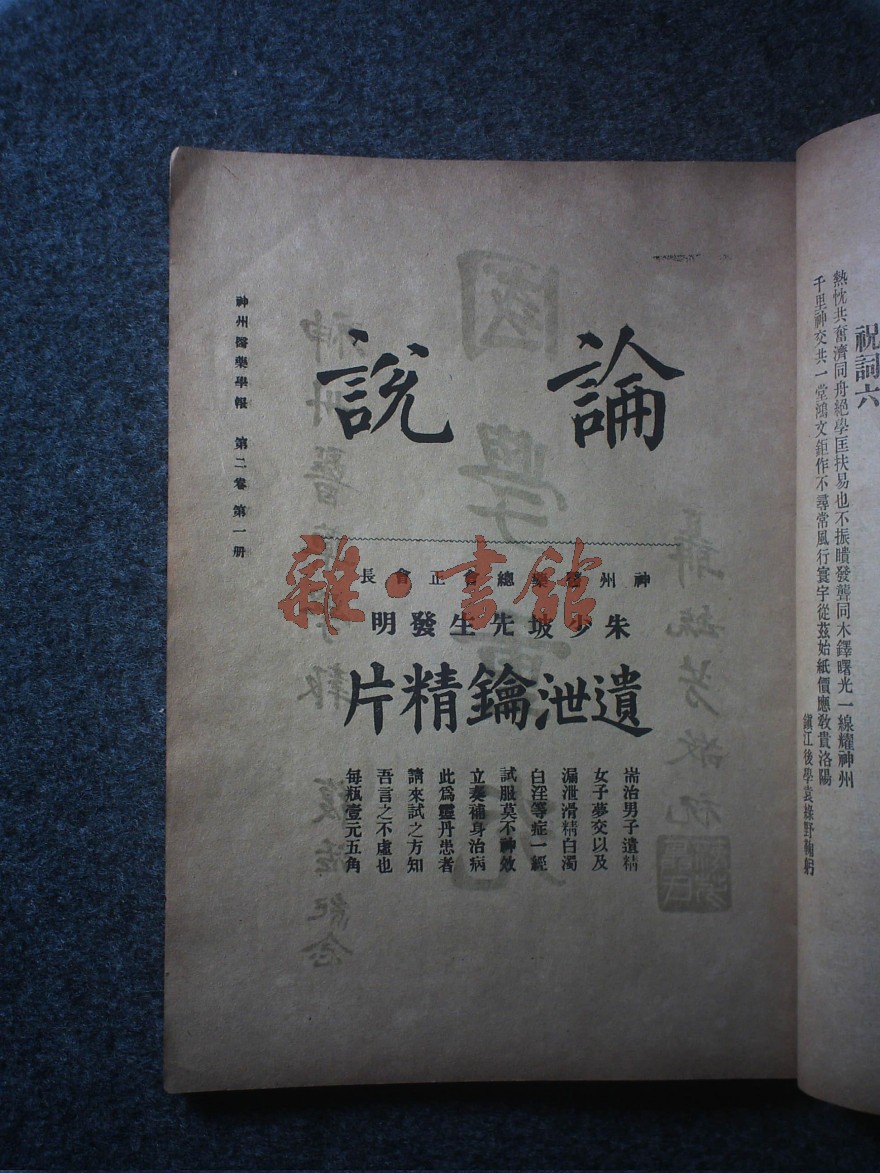 祝詞六
熱忱共奮濟同舟絕學匡扶易也不振聵發聾同木鐸曙光一線耀神州
千里神交共一堂鴻文鉅作不尋常風行寰宇從茲始紙價應教貴洛陽
鎮江後學袁綠野鞠躬
論說
神州醫藥總會正會長
朱少坡先生發明
遺泄鑰精片
耑治男子遺精
女子夢交以及
漏泄滑精白濁
白淫等症一經
試服莫不神效
立奏補身治病
此爲靈丹患者
請來試之方知
吾言之不虛也
每瓶壹元五角
神州醫藥學報 第二卷 第一册
雜·書館